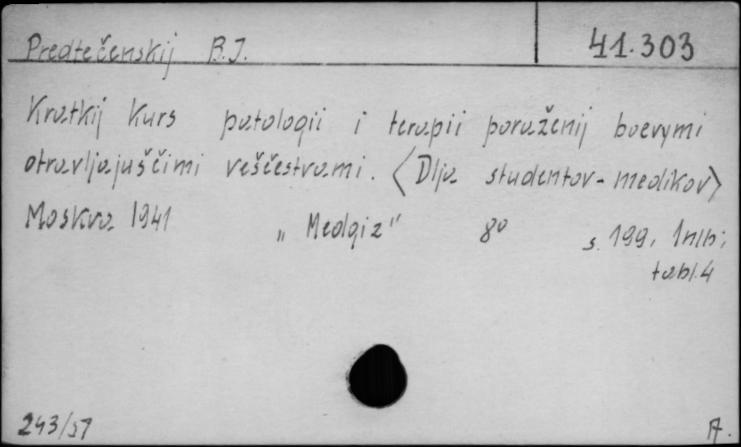 Predtečenskij B.I. 41.303
Kratkij kurs patologii i terapii poraženij boevymi
otravljajuščimi veščestvami. <Dlja studentov-medikov>
Moskva 1941 „Medgiz" 8° s. 199, 1nlb;
tabl.4
243/57 A.